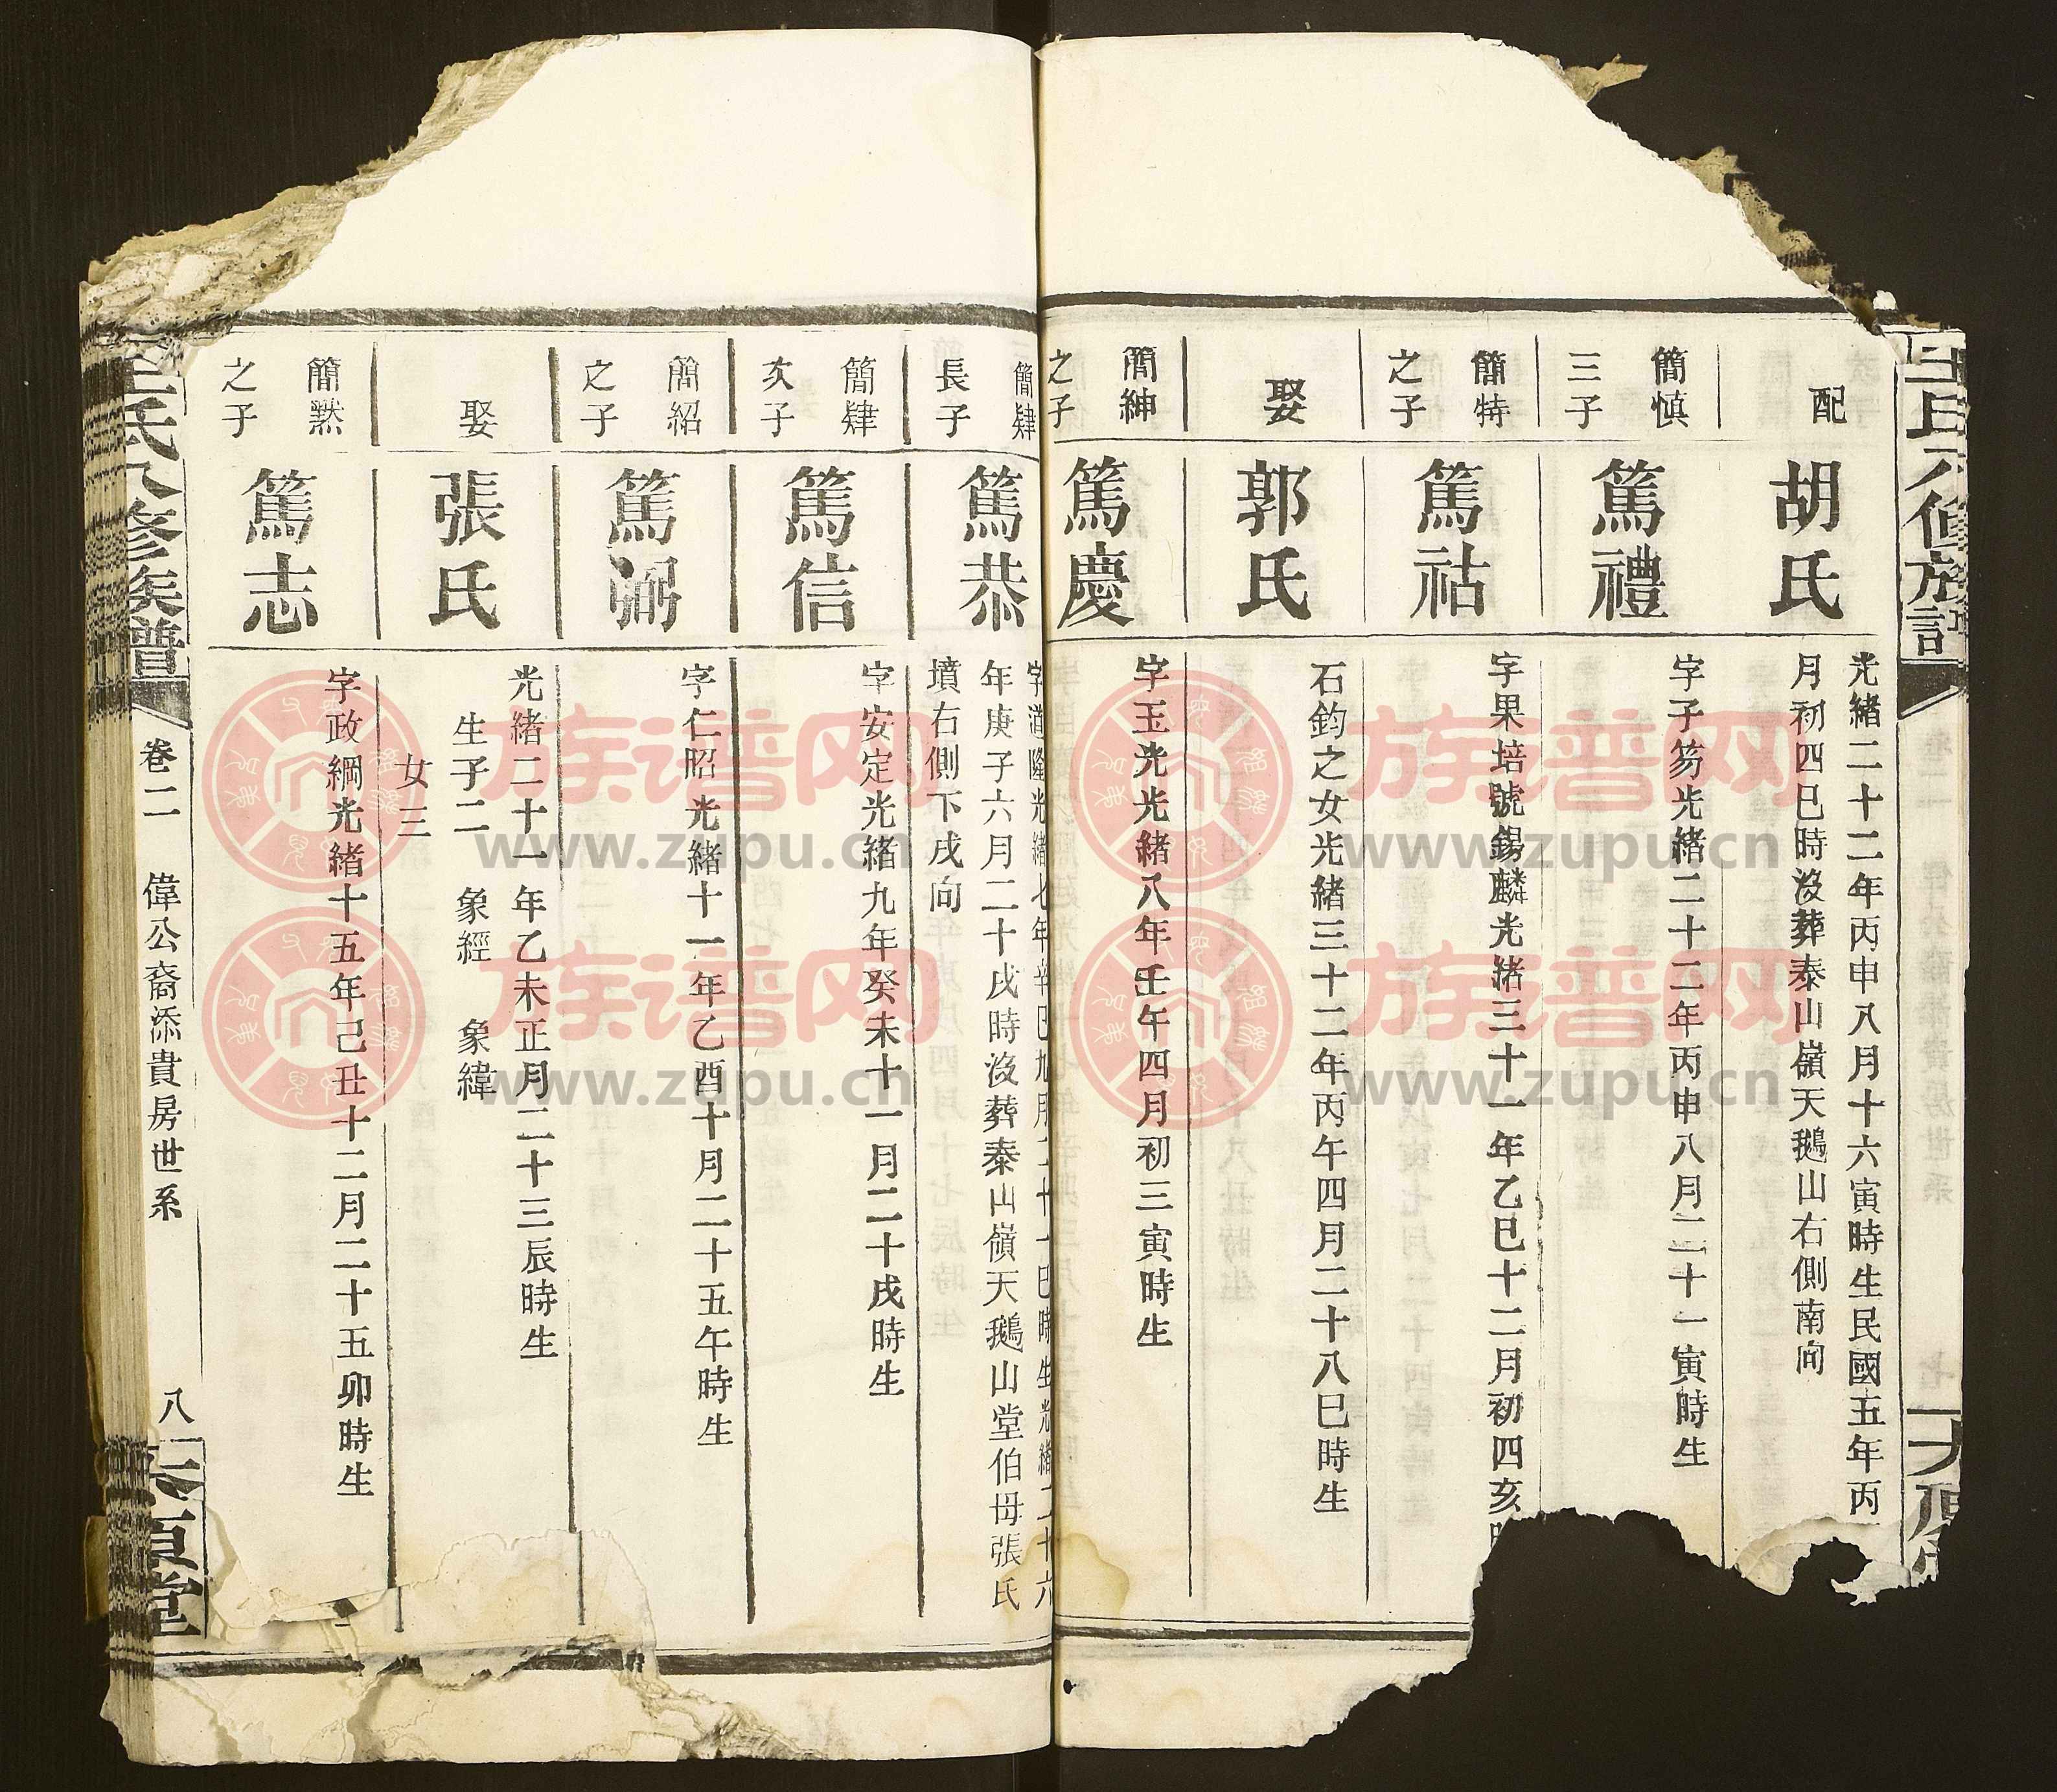 配
胡氏
光緒二十二年丙申八月十六寅時生民國五年丙
月初四巳時沒葬泰山嶺天鵝山右側南向
簡慎
三子
篤禮
字子芴光緒二十二年丙申八月二十一寅時生
簡特
之子
篤祜
字果培號錫麟光緒三十一年乙巳十二月初四亥時
娶
郭氏
石鈞之女光緒三十二年丙午四月二十八巳時生
簡紳
之子
篤慶
字玉光光緒八年壬午四月初三寅時生
簡肄
長子
篤恭
字道隆光緒七年辛巳九月二十一巳時生光緒二十六
年庚子六月二十戌時沒葬泰山嶺天鵝山堂伯母張氏
墳右側下戌向
簡肄
次子
篤信
字安定光緒九年癸未十一月二十戌時生
簡紹
之子
篤弼
字仁昭光緒十一年乙酉十月二十五午時生
娶
張氏
光緒二十一年乙未正月二十三辰時生
生子二 象經 象緯
女三
簡默
之子
篤志
字政綱光緒十五年己丑十二月二十五卯時生
王氏八修族譜
卷二 偉公裔添貴房世系
八
族谱网
www.zupu.cn
族谱网
www.zupu.cn
族谱网
www.zupu.cn
族谱网
www.zupu.cn